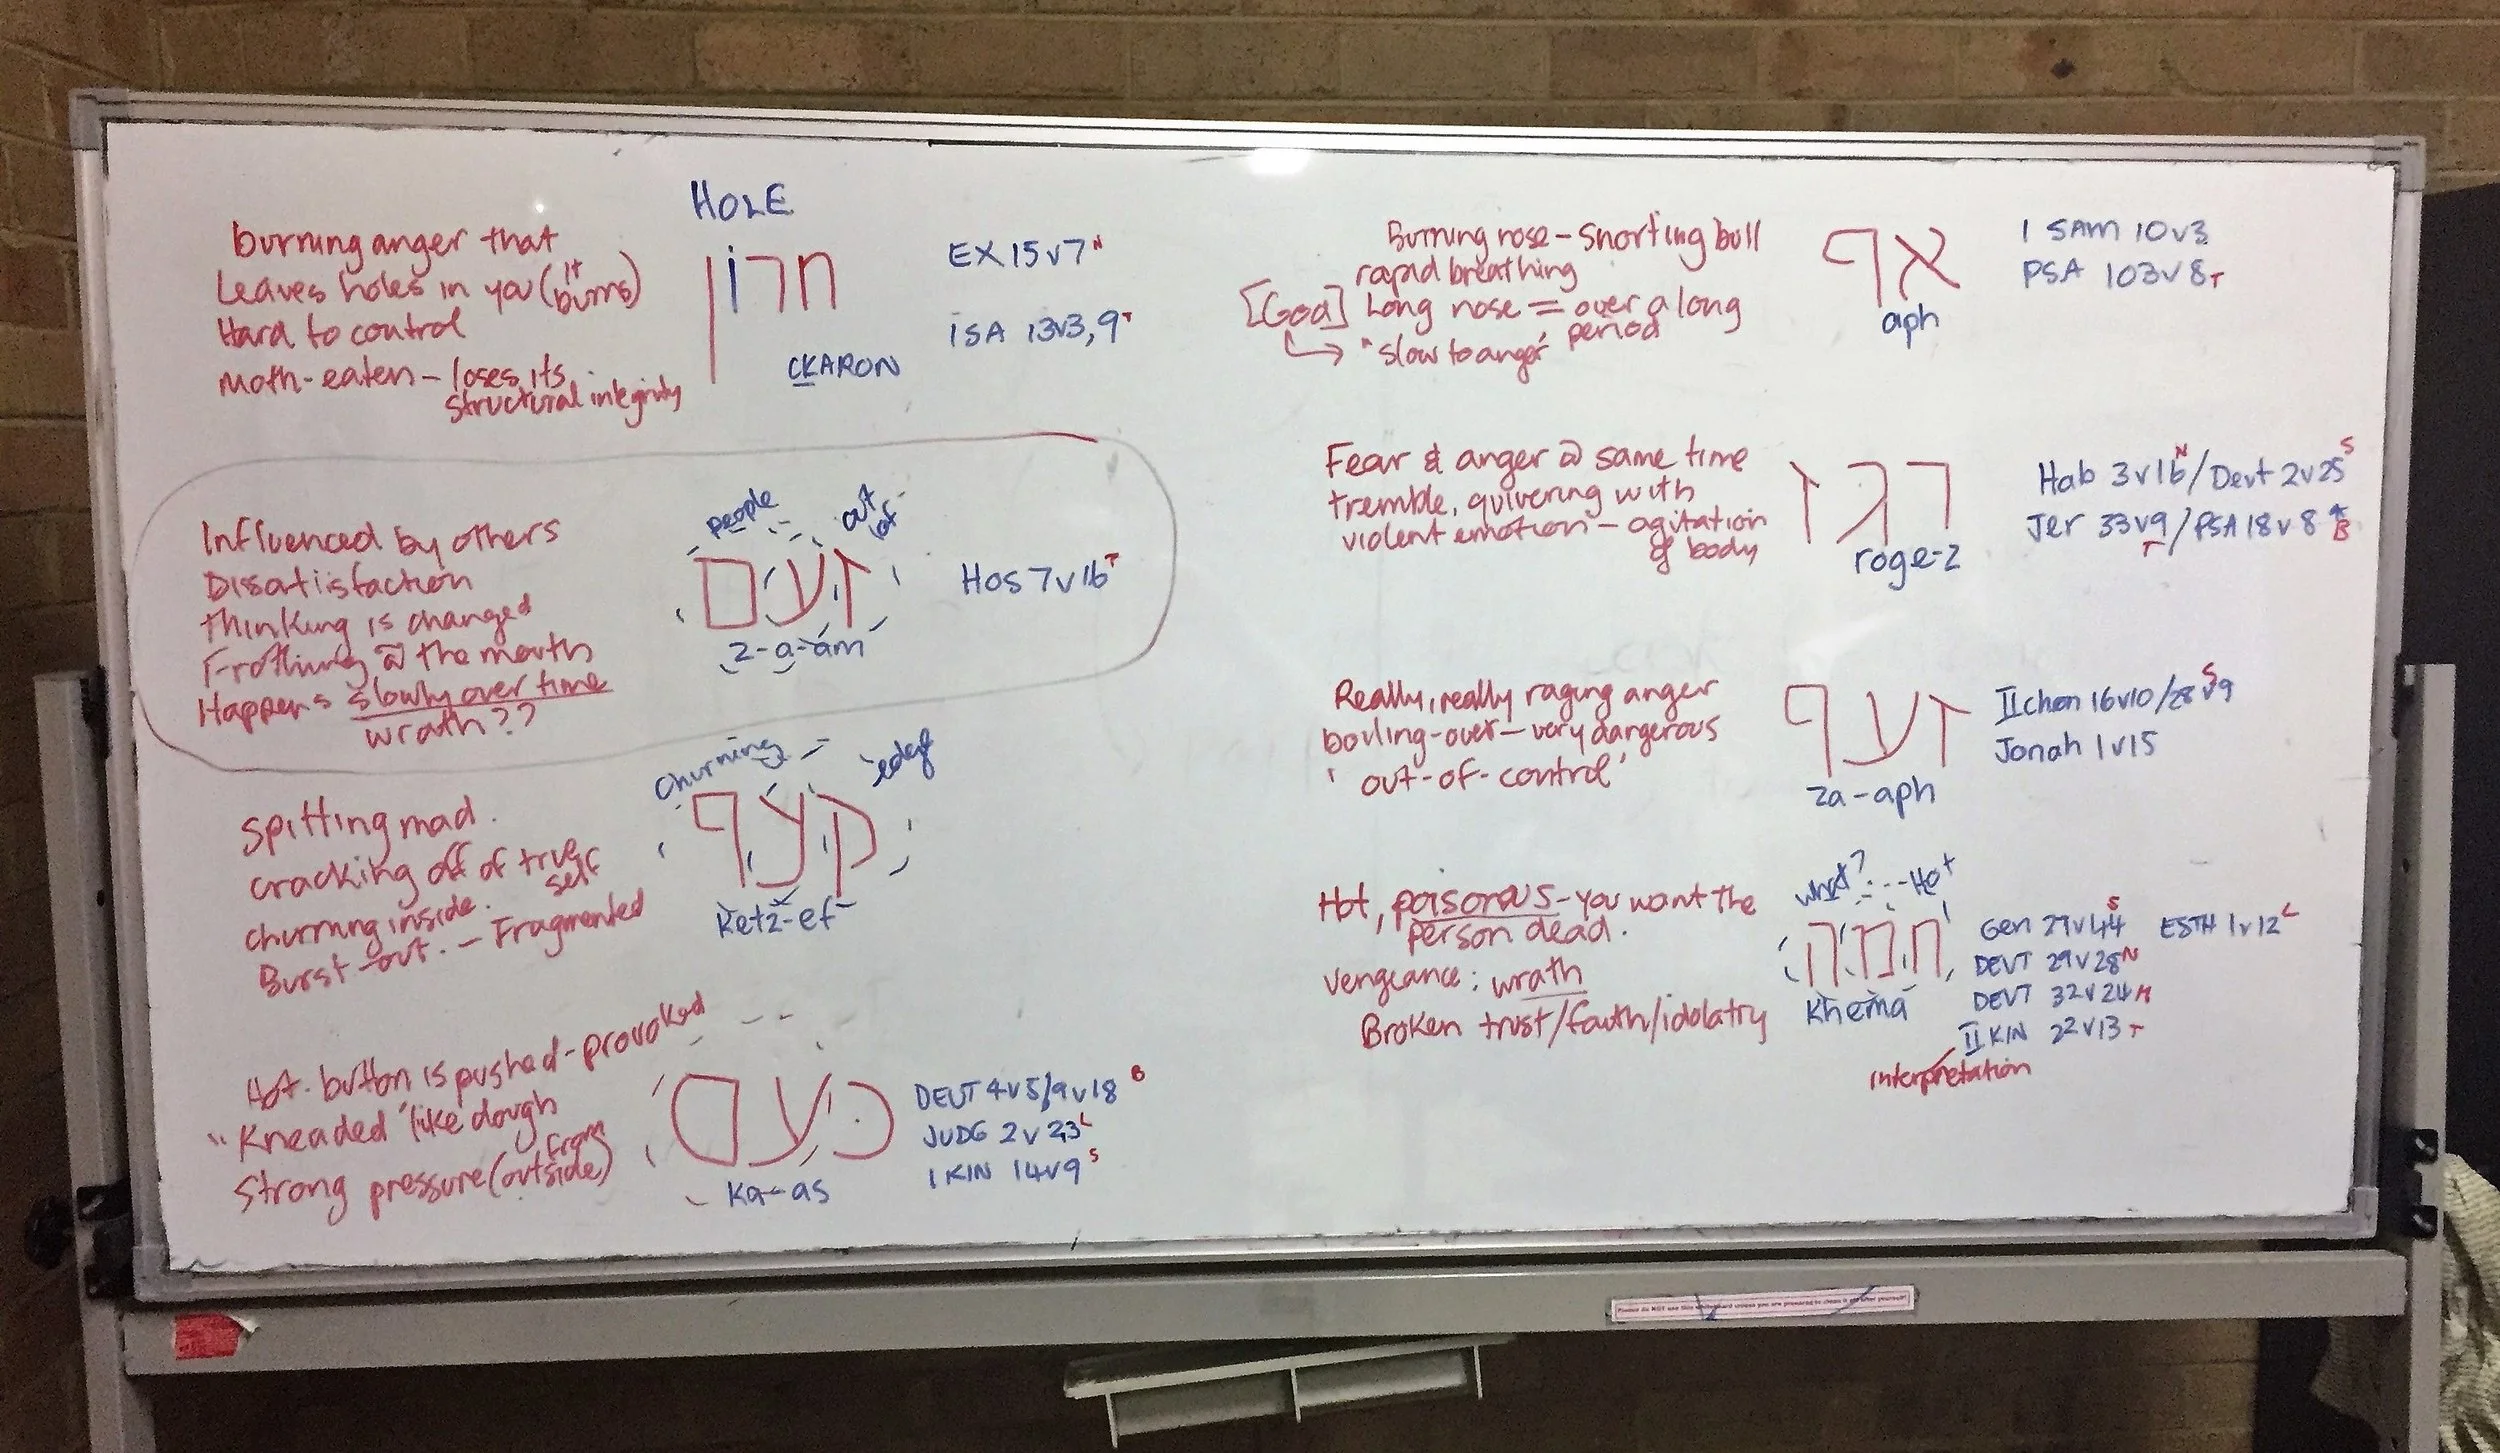 HOLE
burning anger that
Leaves holes in you (it burns)
Hard to control
Moth-eaten - loses its
structural integrity
חרון
CKARON
EX 15v7 N
ISA 13v3,9 T
Influenced by others
Disatisfaction
Thinking is changed
Frothing @ the mouth
Happens slowly over time
wrath??
people out of
זעם
z-a-am
Hos 7v16 T
Spitting mad.
cracking off of true self
churning inside.
Burst-out. - Fragmented
churning edge
קצף
Ketz-ef
Hot-button is pushed - provoked
"Kneaded 'like' dough
Strong pressure (from outside)
כעס
Ka-as
DEUT 4v5/9v18 B
JUDG 2v23 L
1 KIN 14v9 S
Burning nose - snorting bull
rapid breathing
[God] Long nose = over a long period
"slow to anger"
אף
aph
1 SAM 10v3
PSA 103v8 T
Fear & anger @ same time
tremble, quivering with
violent emotion - agitation
of body
רגז
roge-z
Hab 3v16 N / Deut 2v25 S
Jer 33v9 T / PSA 18v8 * B
Really, really raging anger
boiling-over - very dangerous
'out-of-control'
זעף
za-aph
II chon 16v10/28v9 S
Jonah 1v15
Hot, poisonous - you want the
person dead.
Vengeance: wrath
Broken trust/faith/idolatry
what? Hot
חמה
Khema
Gen 27v44 S ESTH 1v12 L
DEUT 29v28 N
DEUT 32v24
II KIN 22v13 T
interpretation
Please do NOT use this whiteboard unless you are prepared to clean it after yourself!